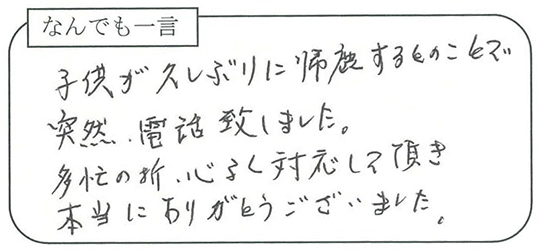 なんでも一言
子供が久しぶりに帰鹿するとのことで
突然、電話致しました。
多忙の折、心よく対応して頂き
本当にありがとうございました。